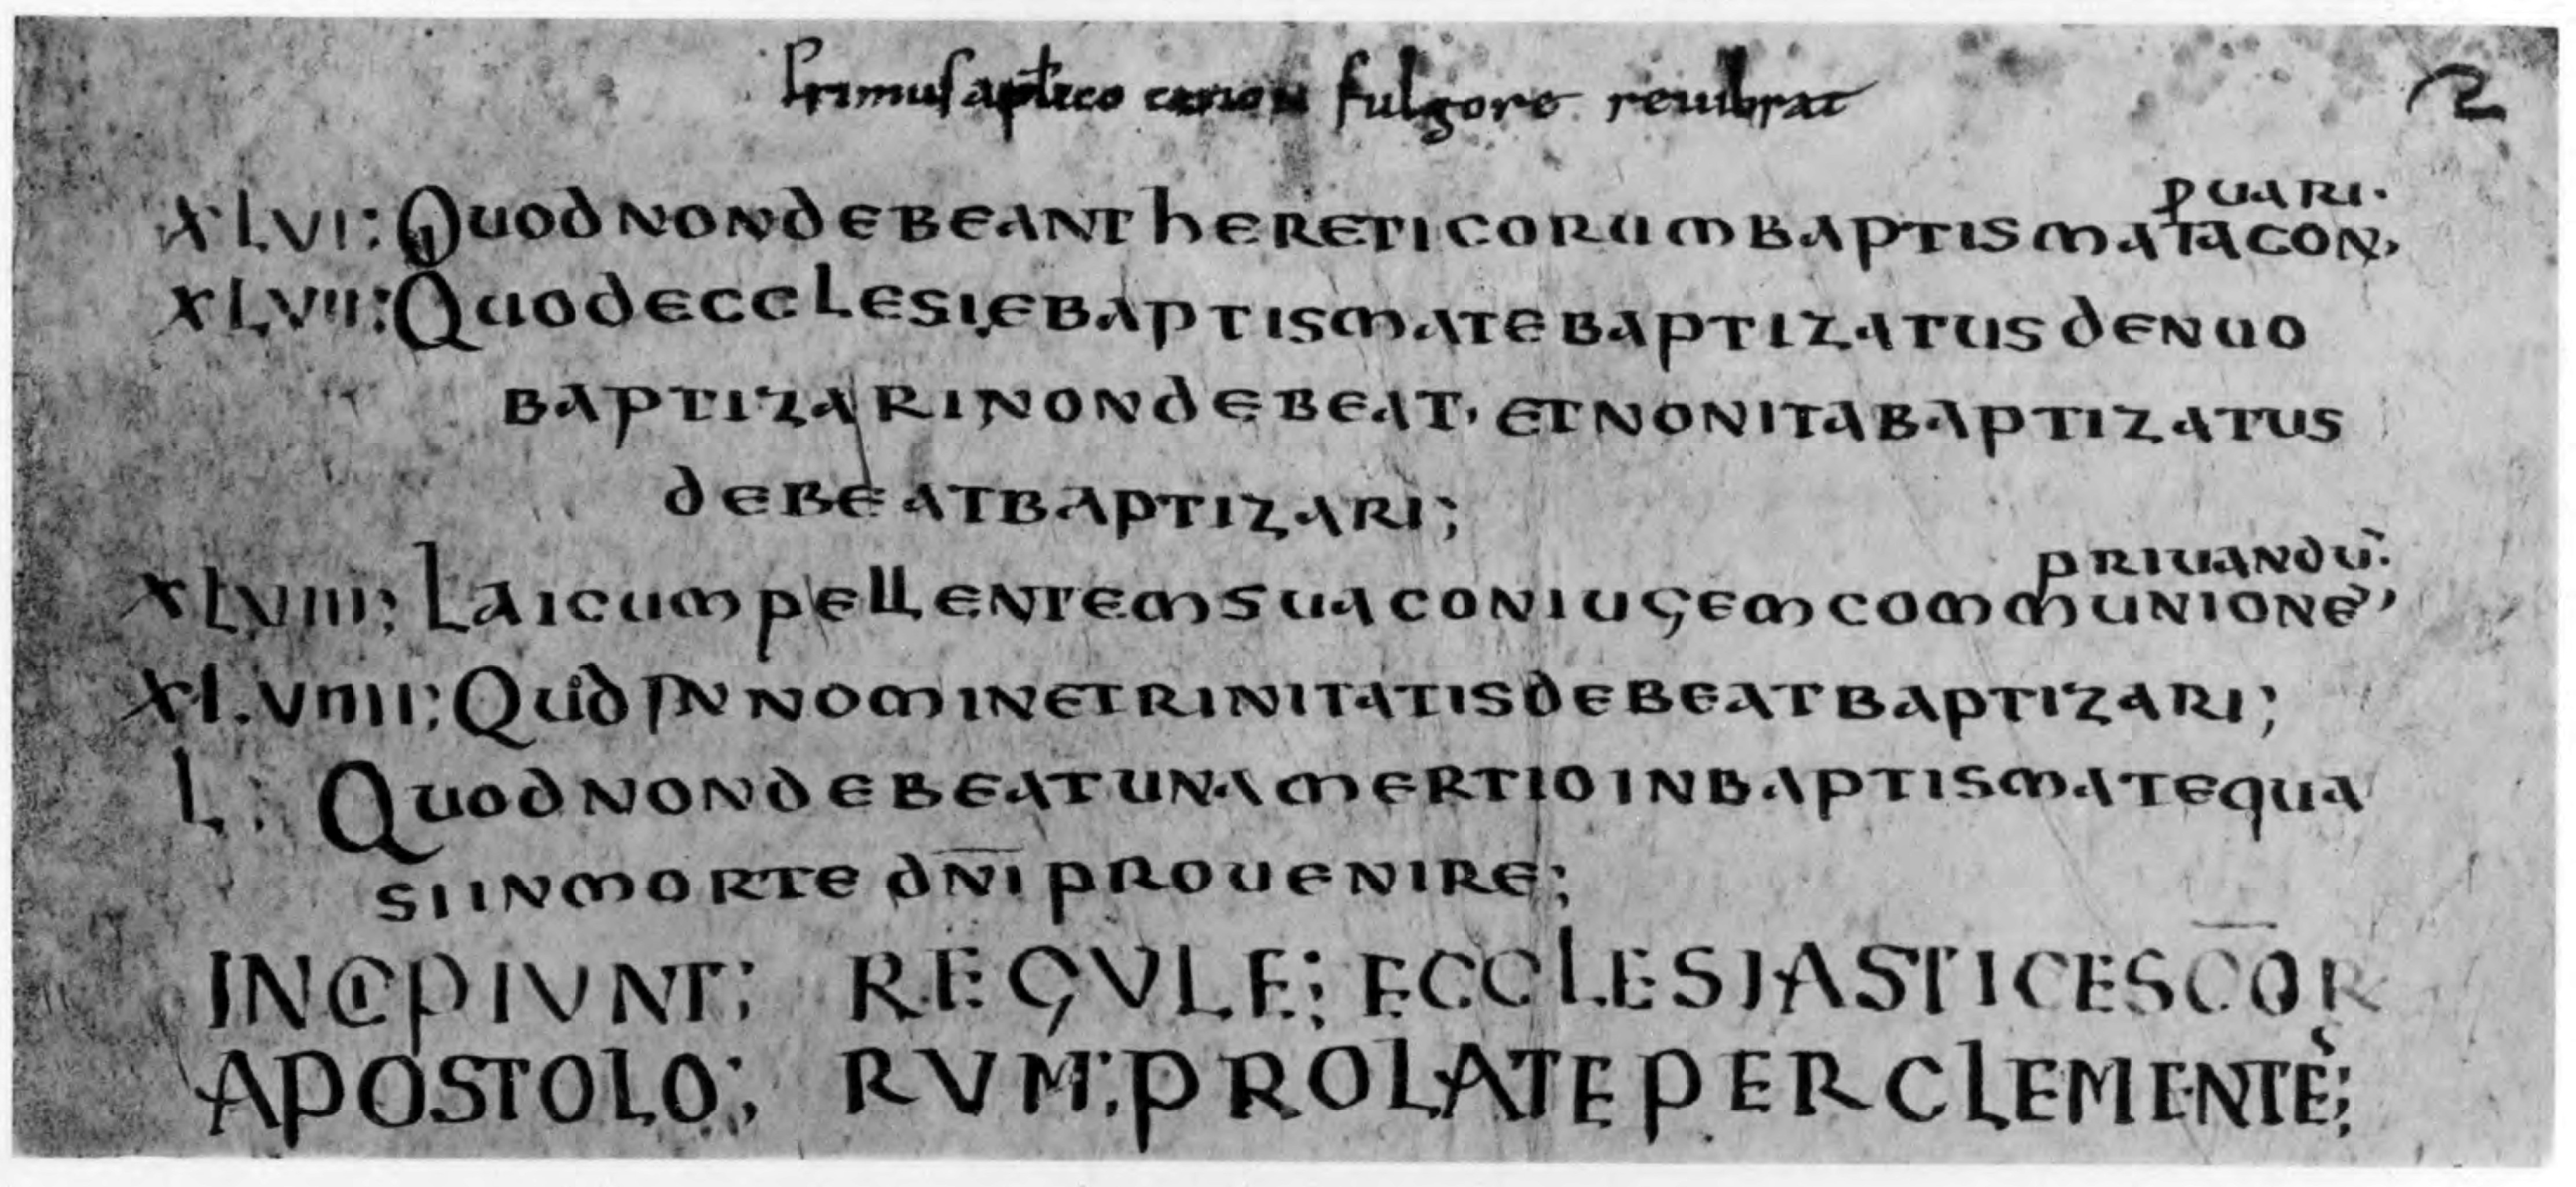 Primus aptlico canon fulgore reuibrat
2
puari.
XLVI: Quod non debeant hereticorum baptismata con,
XLVII: Quod ecclesię baptismate baptizatus denuo
baptizari non debeat, et non ita baptizatus
debeat baptizari;
priuandū:
XLVIII; Laicum pellentem sua coniugem communione,
XLVIIII; Quid in nomine trinitatis debeat baptizari;
L: Quod non debeat una mertio in baptismate qua
si in morte dn̄i prouenire;
INCIPIUNT; REGVLE; ECCLESIASTICE SC̄OR
APOSTOLO; RVM: PROLATE PER CLEMENTE;